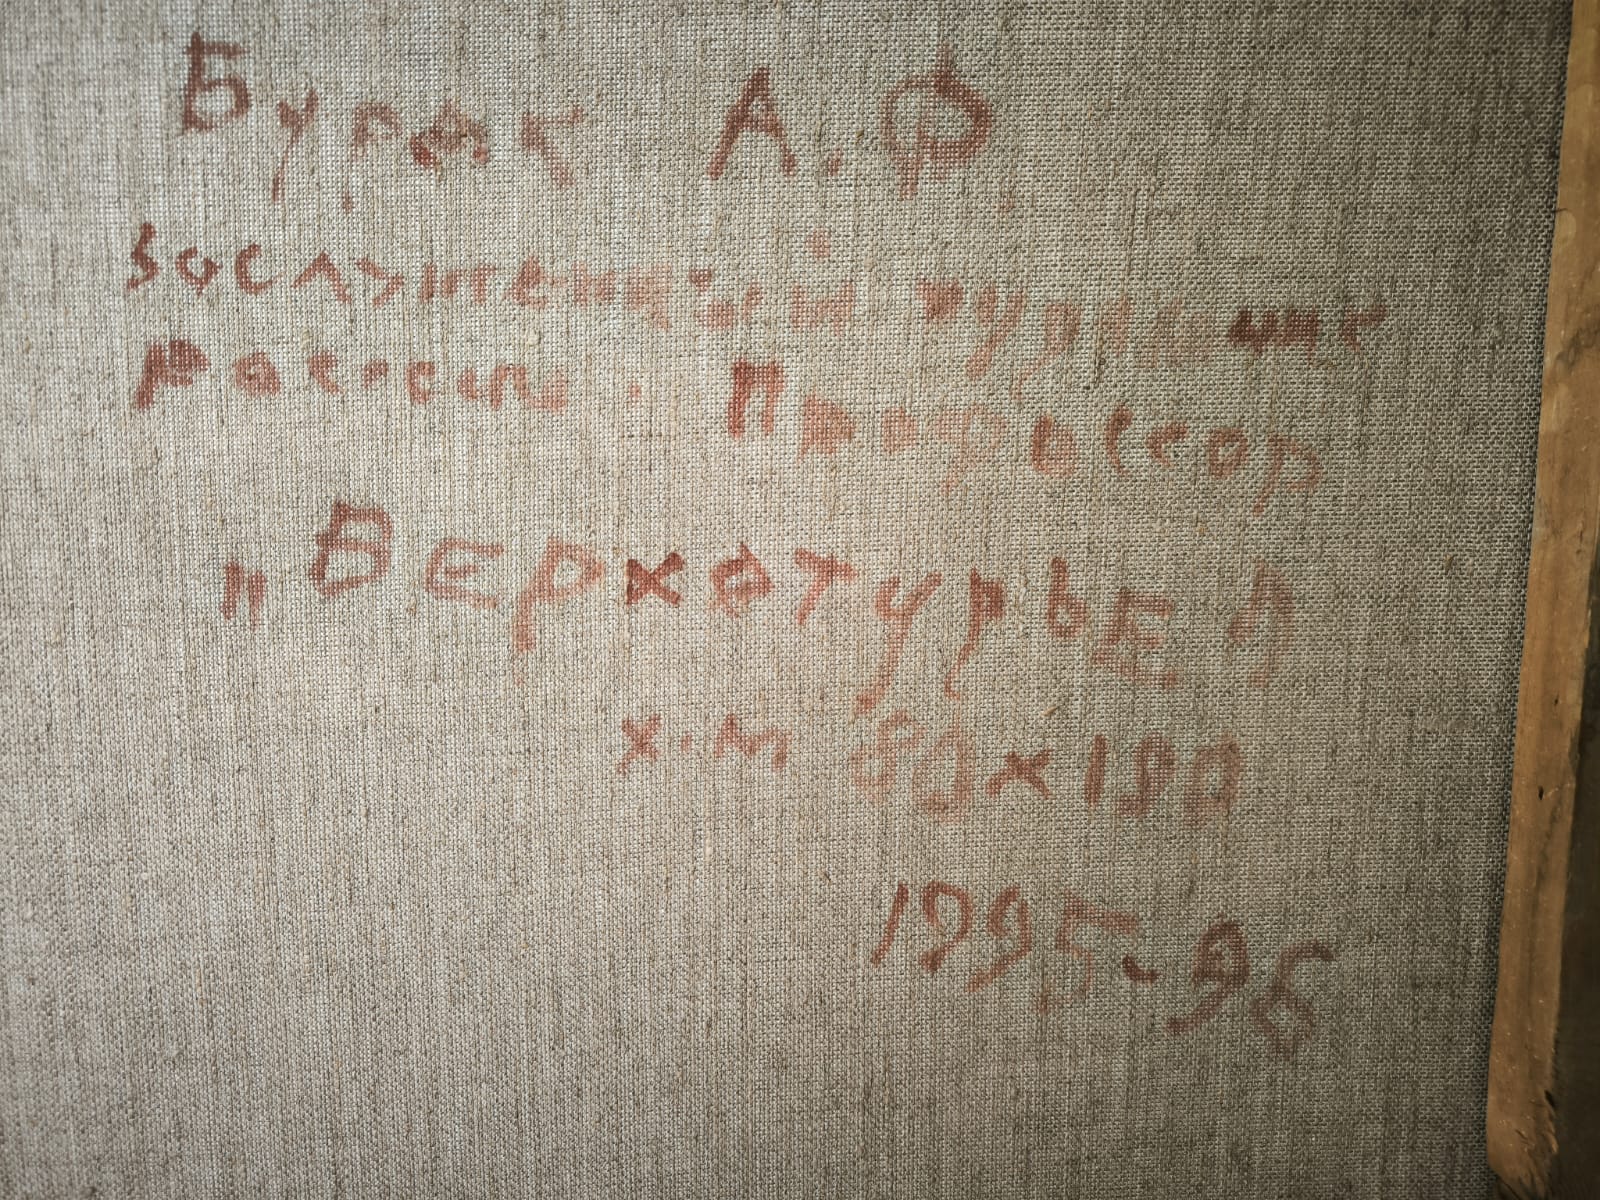 Бурак А.Ф
Заслуженный художник
россии. Профессор
„Верхотурье"
х.м 80х190
1995-96